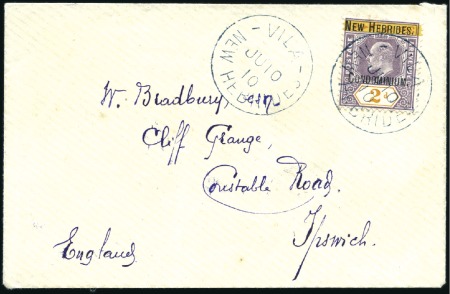 VILA
JU 10
10
NEW HEBRIDES
NEW HEBRIDES.
CONDOMINIUM.
2
W. Bradbury Esq
Cliff Grange,
Constable Road.
Ipswich.
England